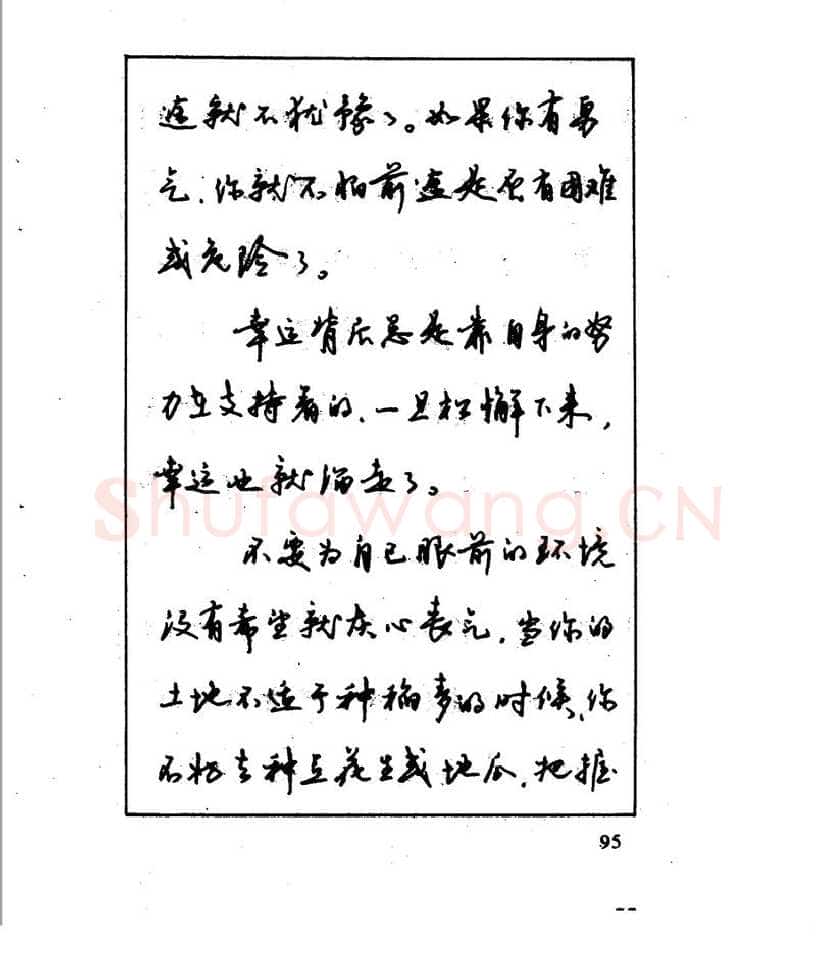 途就不犹豫了。如果你有勇
气,你就不怕前途是否有困难
或危险了。
幸运背后总是靠自身的努
力在支持着的,一旦松懈下来,
幸运也就溜走了。
不要为自己眼前的环境
没有希望就灰心丧气,当你的
土地不适于种稻麦的时候,你
不妨去种点花生或地瓜,把握
95
Shufawang.CN